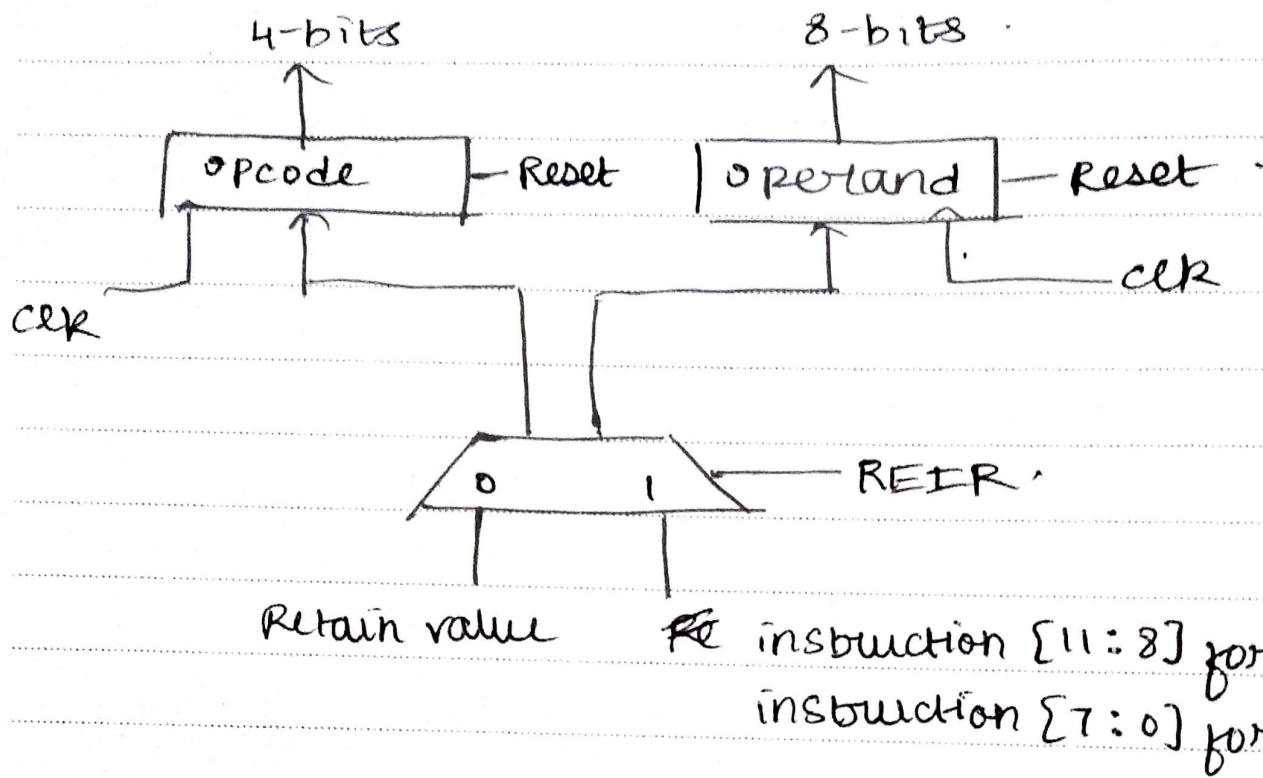 4-bits 8-bits
opcode Reset operand Reset
clk clk
0 1 REIR
Retain value instruction [11:8] for
instruction [7:0] for